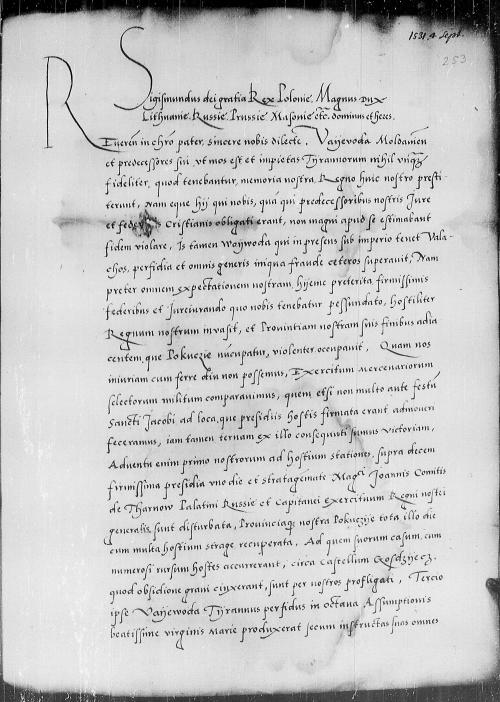 1531 4 Sept.
253
Sigismundus dei gratia Rex Polonie, Magnus Dux
Lithuanie, Russie, Prussie, Masouie etc. dominus et heres.
Reueren in chro pater, sincere nobis dilecte, Vaijevoda Moldauien
et predecessores sui, vt mos est et impietas Tyrannorum nihil vnq
fideliter, quod tenebantur, memoria nostra, Regno huic nostro presti-
terunt, Nam eque hij qui nobis, qua qui predecessoribus nostris Iure
et Cristianis obligati erant, non magni apud se estimabant
fidem violare, Is tamen Waijwoda qui in presens sub imperio tenet Vala-
chos, perfidia et omnis generis iniqua fraude ceteros superauit, Nam
preter omnem expectationem nostram, hijeme preterita, firmissimis
federibus et Iureiurando quo nobis tenebatur pessundato, hostiliter
Regnum nostrum inuasit, et Prouintiam nostram suis finibus adia
centem, que Pokuczie nucupatur, violenter occupauit, Quam nos
iniuriam cum ferre diu non possemus, Exercitum Mercenariorum
selectorum militum comparauimus, quem etsi non multo ante festu
Sancti Jacobi ad loca, que presidiis hostis firmata erant admoueri
feceramus, iam tamen ternam ex illo consequuti sumus victoriam,
Aduentu enim primo nostrorum ad hostium stationes, supra decem
firmissima presidia vno die et stratagemate Magci Joannis Comitis
de Tharnow Palatini Russie et Capitanei exercituum Regni nostri
generalis sunt disturbata, Prouinciaq nostra Pokuczije tota illo die
cum multa hostium strage recuperata, Ad quem suorum casum, cum
numerosi rursum hostes accurrerant, circa Castellum Gosdzijecz,
quod obsidione graui cinxerant, sunt per nostros profligati, Tercio
ipse Vaijewoda Tyrannus perfidus in octaua Assumptionis
beatissime virginis Marie produxerat secum instructas suas omnes